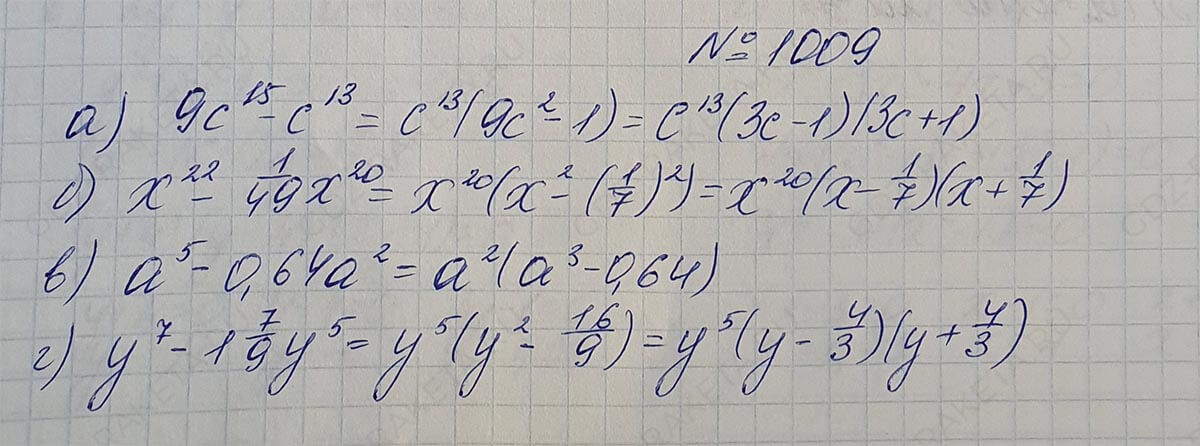 № 1009
а) 9c¹⁵ - c¹³ = c¹³(9c² - 1) = c¹³(3c - 1)(3c + 1)
б) x²² - 1/49 x²⁰ = x²⁰(x² - (1/7)²) = x²⁰(x - 1/7)(x + 1/7)
в) a⁵ - 0,64a² = a²(a³ - 0,64)
г) y⁷ - 1 7/9 y⁵ = y⁵(y² - 16/9) = y⁵(y - 4/3)(y + 4/3)